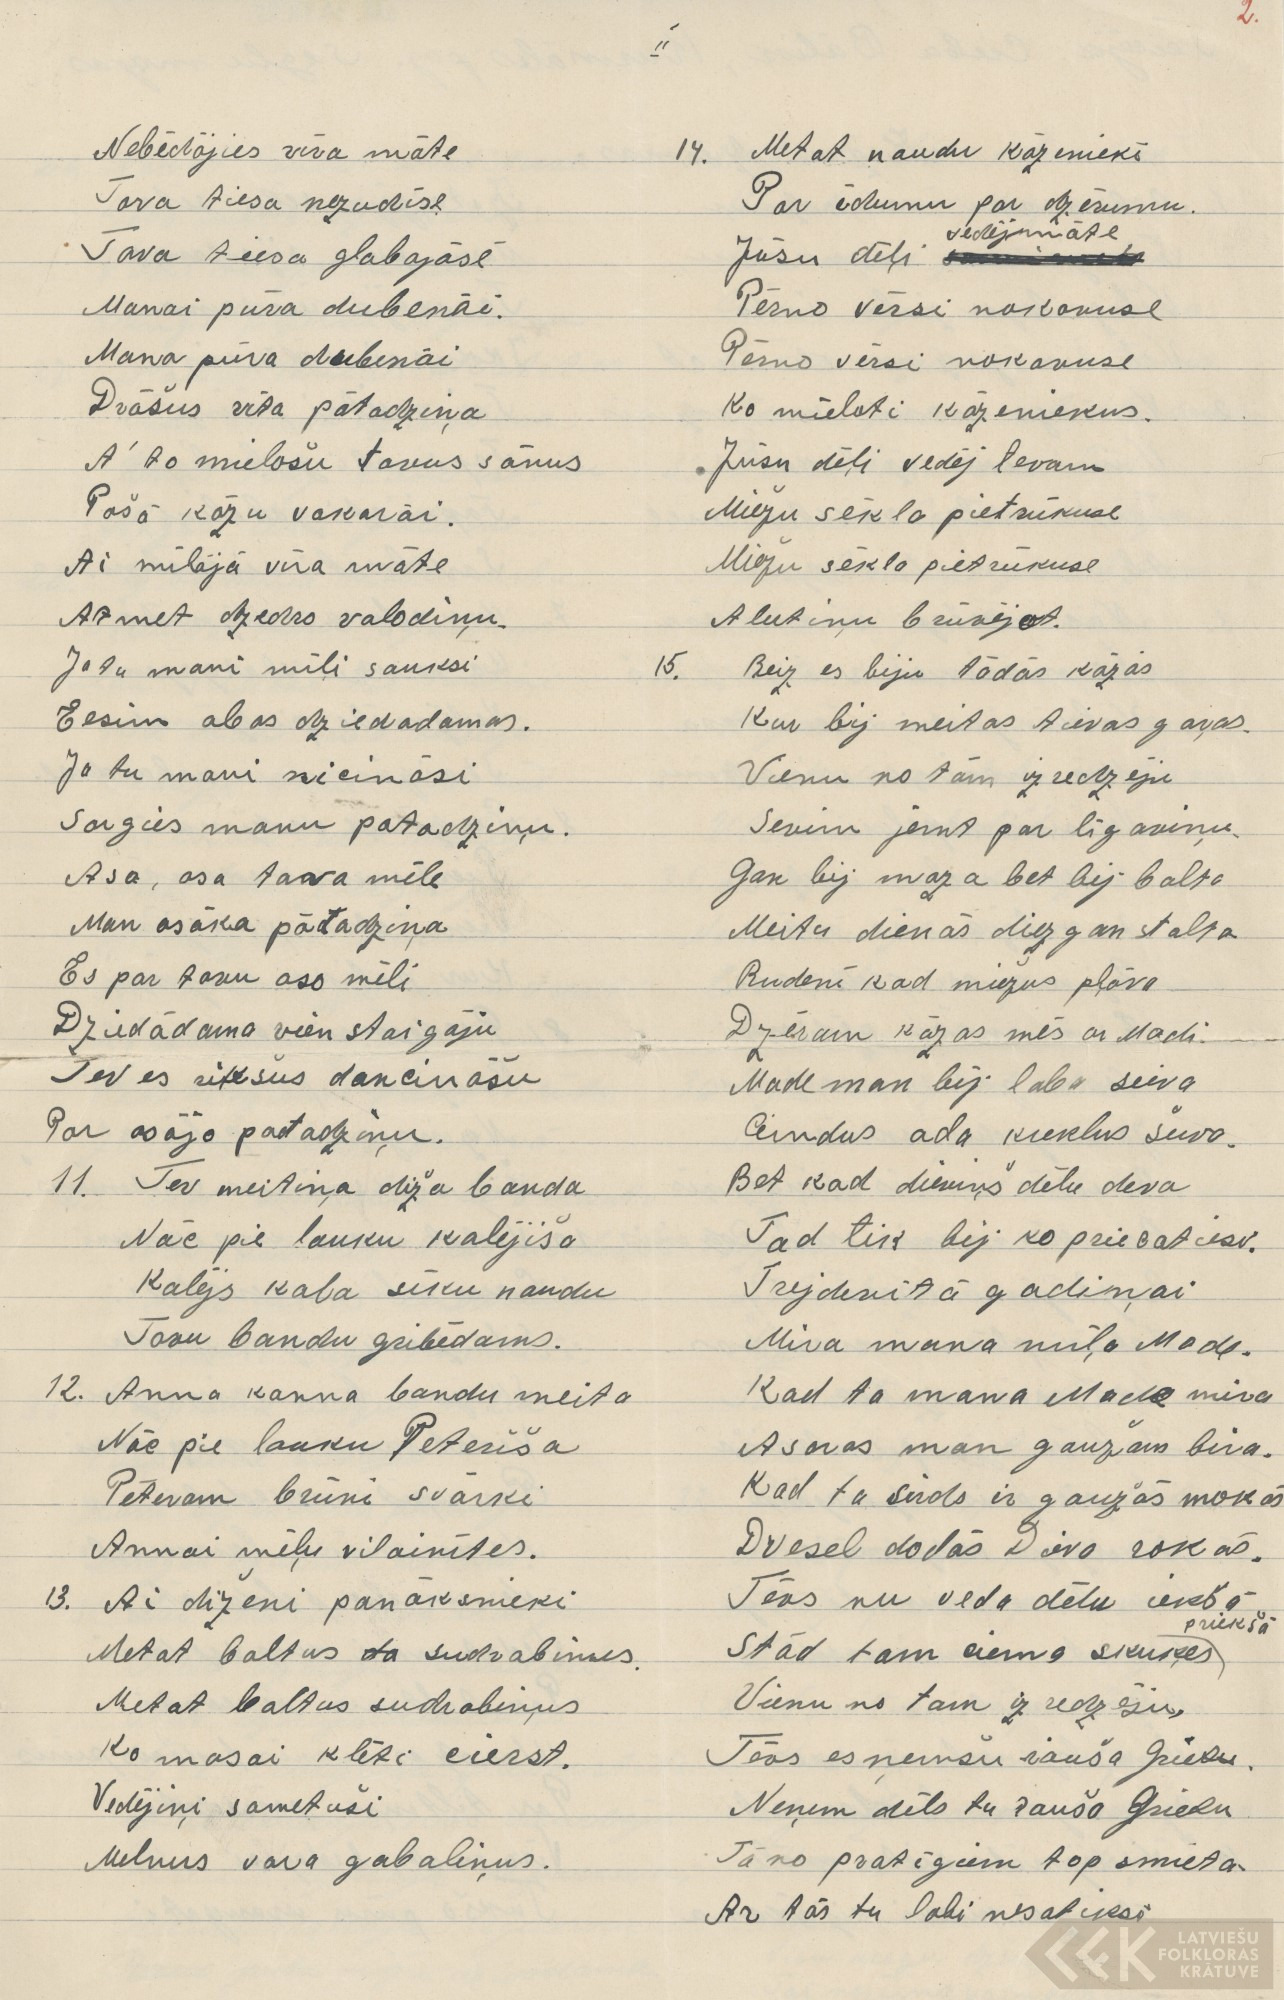 2.
II
Nebēdājies vīra māte
Tava tiesa nezudīse
Tava tiesa glabajāsē
Manai pūra dubenāi.
Mana pūra dubenāi
Drāšus vīta pātadziņa
A' to mielošu tavus sānus
Pašā kāzu vakarāi.
Ai mīļājā vīra māte
Atmet dzedro valodiņu.
Ja tu mani mīļi sauksi
Eesim abas dziedadamas.
Ja tu mani nicināsi
Sargies manu patadziņu.
Asa, asa tava mēle
Man asāka pātadziņa
Es par tavu aso mēli
Dziedādama vien staigāju
Tev es rikšus dancināšu
Par asājo patadziņu.
11. Tev meitiņa diža banda
Nāc pie lauku kalējiša
Kalējs kala sīku naudu
Tavu bandu gribēdams.
12. Anna kanna bandu meita
Nāc pie lauku Peteriša
Pēteram brūni svārki
Annai mēļu vilainītes.
13. Ai diženi panāksnieki
Metat baltus sudrabinus.
Metat baltus sudrabiņus
Ko masai klēti cierst.
Vedējiņi sametuši
Melnus vara gabaliņus.
14. Metat naudu kāzenieki
Par ēdumu par dzērumu.
vedējmāte
Jūsu dēļi
Pērno vērsi nokavuse
Pērno vērsi nokavuse
Ko mielati kāzeniekus.
Jūsu dēļi vedēj levam
Miežu sēkla pietrūkuse
Miežu sēkla pietrūkuse
Alutiņu brūvējot.
15. Reiz es biju tādās kāzās
Kur bij meitas tievas gaŗas.
Vienu no tām izredzēju
Sevim jemt par līgaviņu.
Gan bij maza bet bij balta
Meitu dienās diezgan stalta
Rudenī kad miežus pļāva
Dzēram kāzas mēs ar Madi.
Made man bij laba sieva
Cimdus ada kreklus šuva.
Bet kad dieviņš dēlu deva
Tad tik bij ko priecaties.
Trejdevitā gadiņai
Mira mana mīļa Made.
Kad ta mana Made mira
Asaras man gaužam bira.
Kad ta sirds ir gaužās mokās
Dvesel dodās Dieva rokās.
Tēvs nu veda dēlu iekšā
priekšā
Stād tam ciema skuķes
Vienu no tam izredzēju,
Tēvs es ņemšu rauša Grietu.
Neņem dēls tu rauša Grietu
Tā no pratīgiem top smieta.
Ar tās tu labi nesatiksi
LATVIEŠU
FOLKLORAS
KRĀTUVE